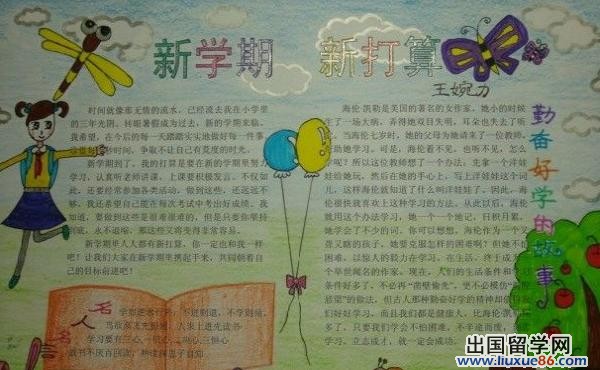 新学期 新打算
王婉力
时间就像那无情的流水，已经流去我在小学里
的三年光阴。转眼暑假成为过去，新的学期来临。
我希望，在今后的每一天踏踏实实地做好每一件事
时间，争取不让自己有莫度的时光。
新学期到了，我的打算是要在新的学期里努力
学习，认真听老师讲课，上课要积极发言。不仅如
此，还要经常参加各类活动，做到这些，还远远不
够，我还希望自己能在每次考试中考出好成绩。我
知道，要做到这些是很难很难的，但是只要你坚持
到底，永不退缩，那这些又将变得非常容易。
新学期单人人都有新打算，你一定也和我一样
吧！让我们大家在新学期里携起手来，共同朝着自
己的目标前进吧！
名人名言
学如逆水行舟，不进则退，
学习要有三心，
勤奋好学的故事
海伦·凯勒是美国的著名的女作家，她小的时候
生了一场大病，弄得她双目失明，耳朵也失去了听
力。当海伦七岁时，她的父母为她请来了一位教师，
助她学习。可是，海伦看不见，也听不见，怎么
呢？所以这位教师想了一个办法，先拿一个洋娃
娃给她玩，然后在她的手心上，写上洋娃娃这个词
儿，这样海伦就知道了什么叫洋娃娃了。因此，海伦
很快就喜欢上这种学习的方法。从此以后，海伦
就用这个办法学习，她一个一个地记，日积月累，
她学会了不少的词。你可以想想，海伦作为一个又
聋又瞎的孩子，她要克服怎样的困难啊！但她不怕
困难，以惊人的毅力在学习，在生活，终于成为
个举世闻名的作家。现在，人们的生活条件和学习
条件好多了，不必再“凿壁偷光”，更不必模仿
的做法，但古人那种勤奋好学的精神却值得我
们好好学习，而且我们都是健康人，比海伦
多了，只要我们学会不怕困难，不半途而废，
学习，立志成才，就一定会成功。
出国留学网
www.liuxue86.com